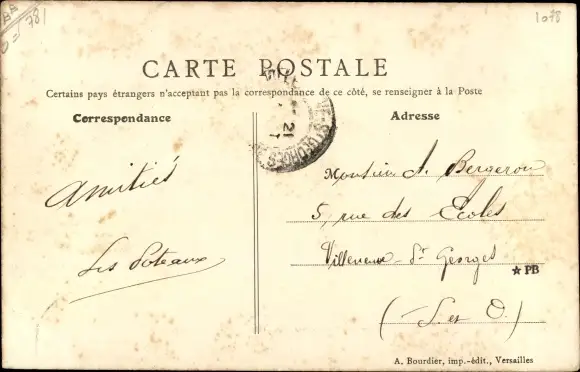 1078
781
CARTE POSTALE
Certains pays étrangers n'acceptant pas la correspondance de ce côté, se renseigner à la Poste
Correspondance
Adresse
21
Amitiés
Les Poteaux
Monsieur A. Bergerou
5, rue des Ecoles
Villeneuve-St Georges
★ PB
(S. et O.)
A. Bourdier, imp.-édit., Versailles